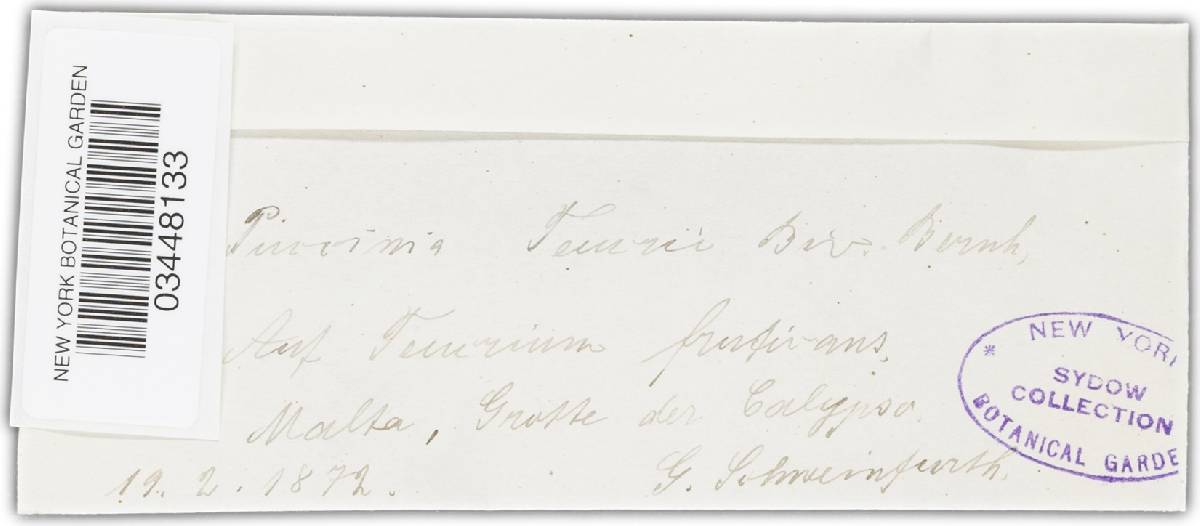 NEW YORK BOTANICAL GARDEN
03448133
Puccinia Teucrii Biv. Bernh.
Auf Teucrium fruticans,
Malta, Grotte der Calypso.
19. 2. 1872. G. Schweinfurth.
* NEW YORK
SYDOW
COLLECTION
BOTANICAL GARDE